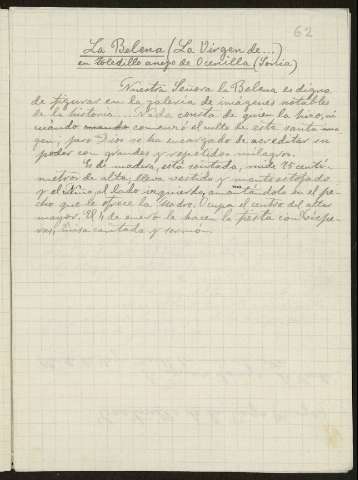 62
La Belena (La Virgen de...)
en Toledillo anejo de Ocenilla (Soria)
Nuestra Señora la Belena es digna
de figurar en la galería de imágenes notables
de la historia... Nada consta de quien la hizo, ni
cuándo comenzó el culto de esta santa ima
gen, pero Dios se ha encargado de acreditar su
poder con grandes y repetidos milagros.
Es de madera, está sentada, mide 75 centí
metros de alta, lleva vestido y manto estofado
y el Niño al lado izquierdo, en el pe
cho que le ofrece la Madre. Ocupa el centro del altar
mayor. El 4 de enero la hacen la fiesta con Vispe
ras, misa cantada y sermón.